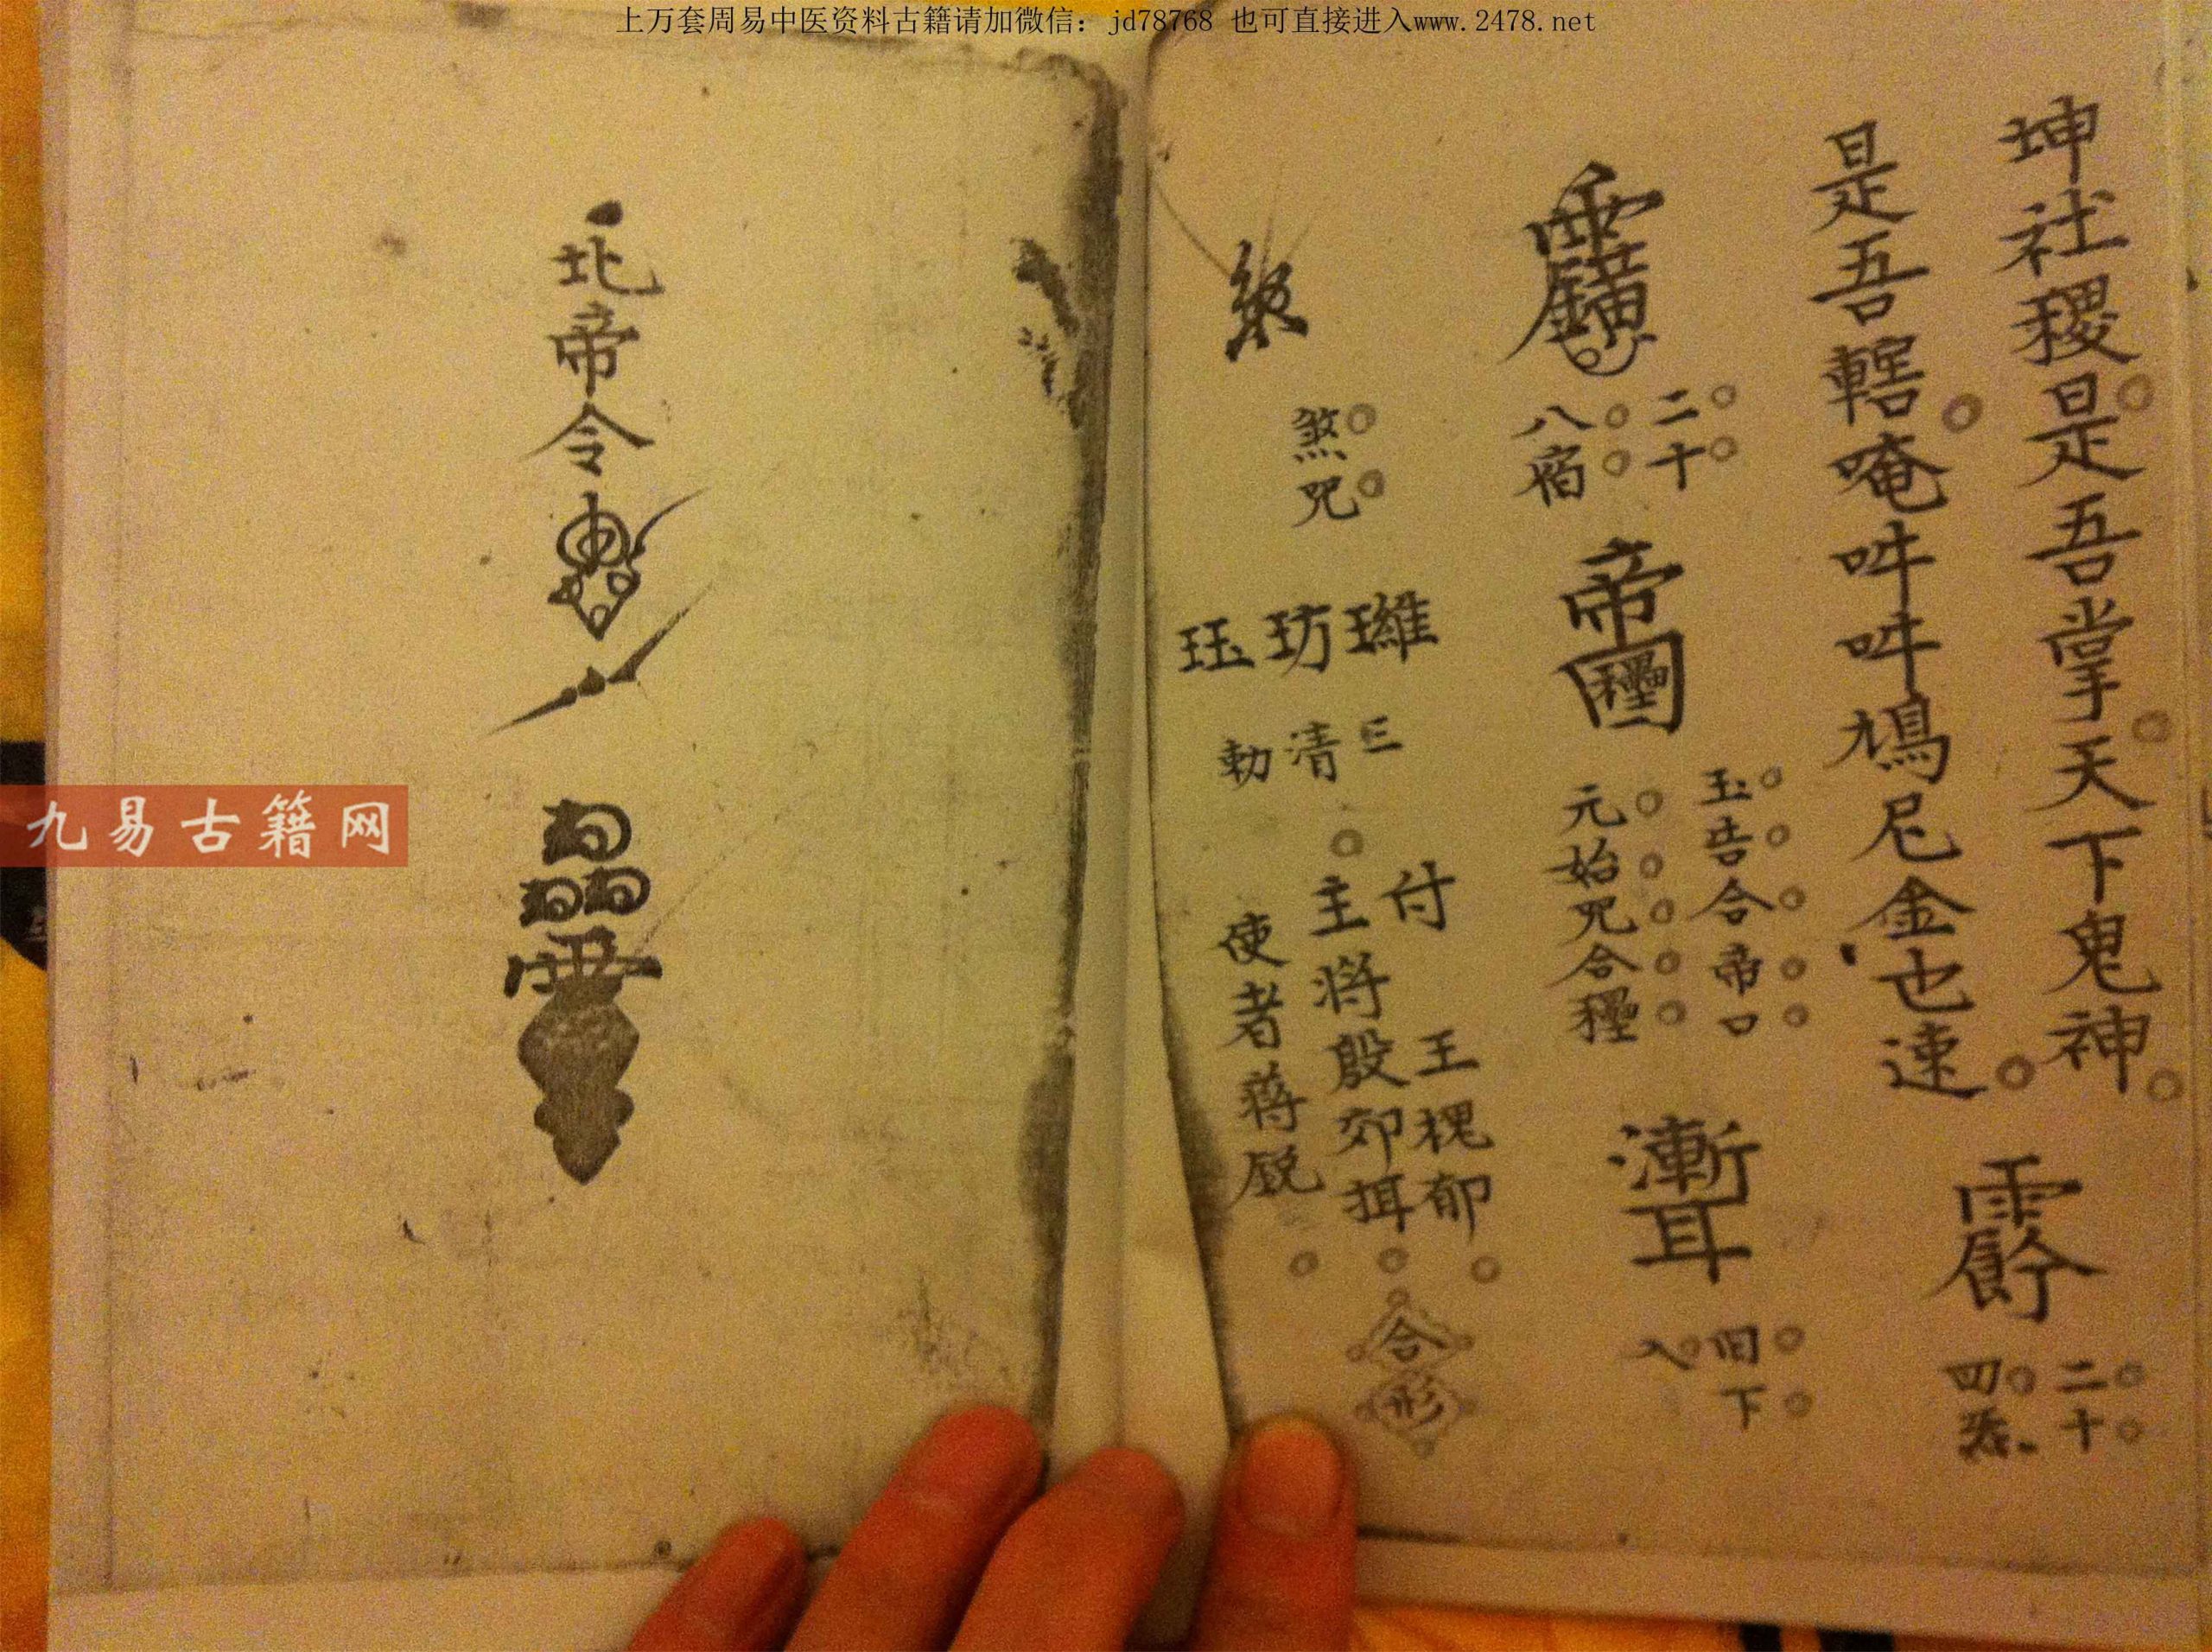 上万套周易中医资料古籍请加微信：jd78768 也可直接进入www.2478.net
坤社稷是吾掌天下鬼神
二十
四炁
是吾轄唵吽吽鳩尼金也速
二十
八宿
帝
玉告合帝口
元始咒合
囬下
入
煞咒
三清勅
付
王
郁
主將殷郊
使者蔣銳
合形
北帝令
九易古籍网